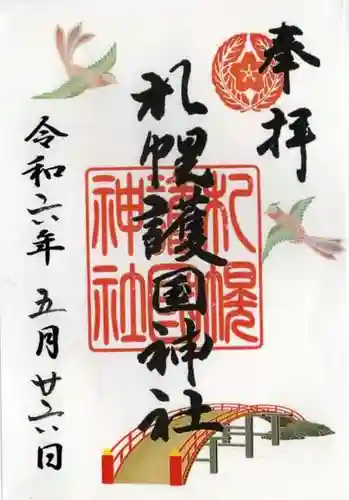 奉拝
札幌護国神社
令和六年 五月廿六日
札幌
護国
神社